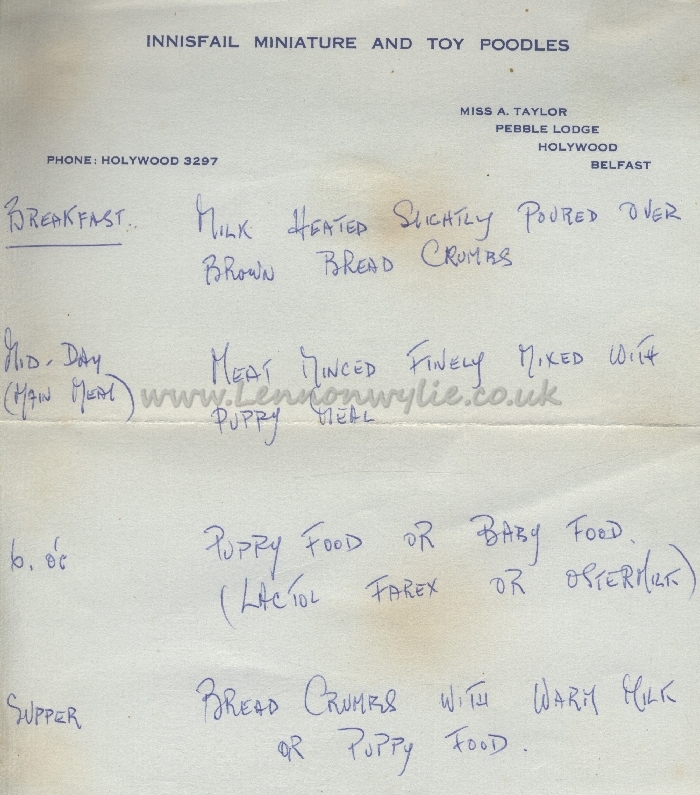 INNISFAIL MINIATURE AND TOY POODLES
MISS A. TAYLOR
PEBBLE LODGE
HOLYWOOD
BELFAST
PHONE: HOLYWOOD 3297
BREAKFAST.. MILK HEATED SLIGHTLY POURED OVER
BROWN BREAD CRUMBS
MID-DAY MEAT MINCED FINELY MIXED WITH
(MAIN MEAL) PUPPY MEAL
www.Lennonwylie.co.uk
6. o'c PUPPY FOOD OR BABY FOOD.
(LACTOL FAREX OR OSTERMILK)
SUPPER BREAD CRUMBS WITH WARM MILK
OR PUPPY FOOD.